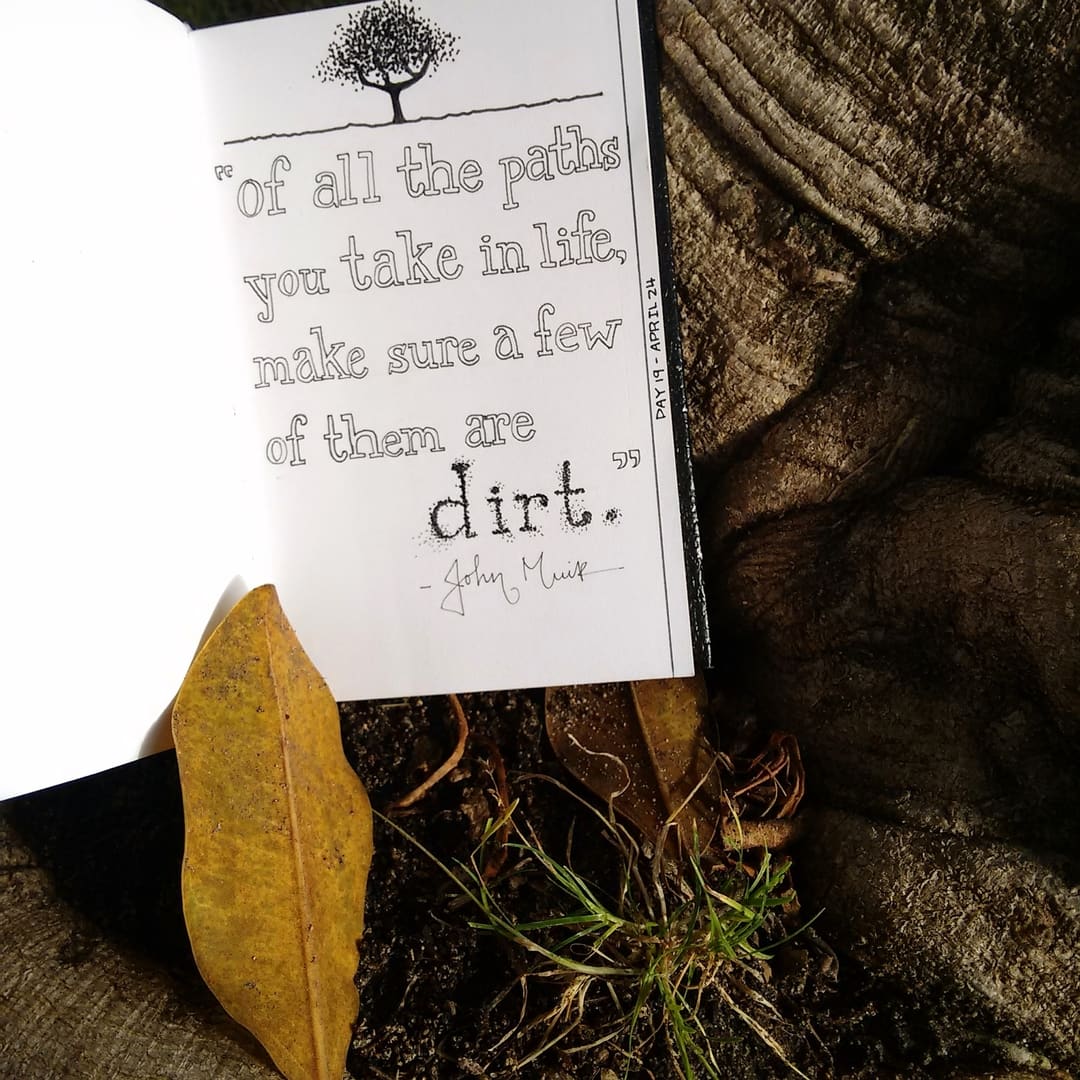 “of all the paths
you take in life,
make sure a few
of them are
dirt.”
- John Muir -
DAY 19 - APRIL 24